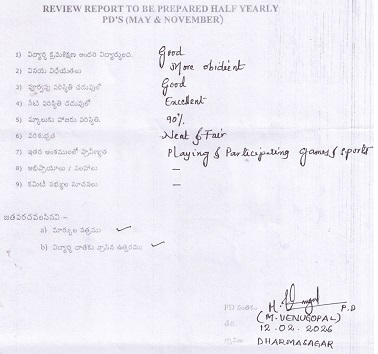 REVIEW REPORT TO BE PREPARED HALF YEARLY
PD'S (MAY & NOVEMBER)
1) విద్యార్థి క్రమశిక్షణ అందరి విద్యార్థులది. Good
2) వినయ విధేయతలు More obidient
3) పూర్వపు పరిస్థితి చదువులో Good
4) నేటి పరిస్థితి చదువులో Excellent
5) స్కూలుకు హాజరు పరిస్థితి. 90%
6) పరిశుభ్రత Neat & Fair
7) ఇతర అంశములలో ప్రావీణ్యత Playing & Participating Games & Sports
8) అభిప్రాయాలు / సలహాలు —
9) కమిటీ సభ్యుల సూచనలు —
జతపరచవలసినవి :-
a) మార్కుల పత్రము ✓
b) విద్యార్థి దాతకు వ్రాసిన ఉత్తరము ✓
PD సంతకం P.D
(M. VENUGOPAL)
తేది. 12.02.2026
స్థలం DHARMASAGAR